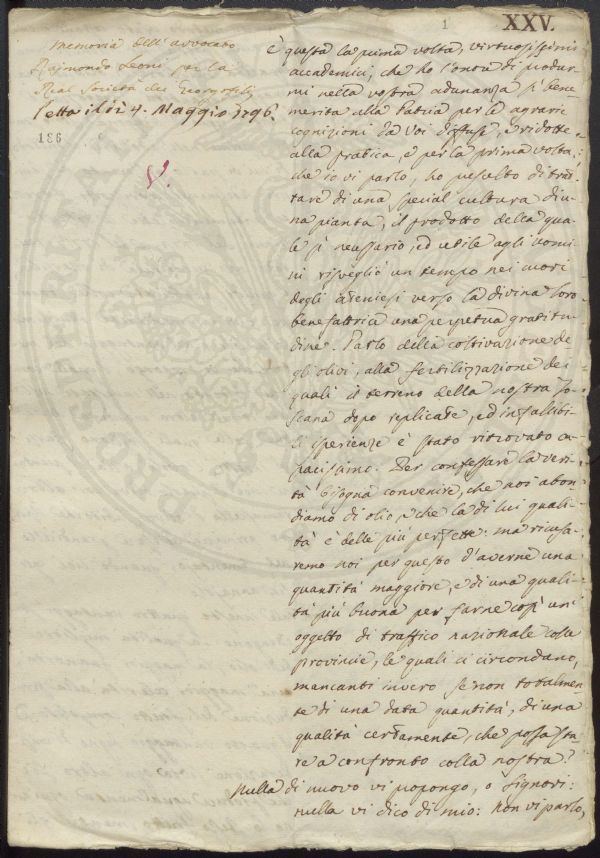 1 XXV.
Memoria dell'avvocato
Raimondo Leoni per la
Real Società dei Georgofili
letta il dì 4. Maggio 1796.
136
È questa la prima volta, virtuosissimi
accademici, che ho l'onore di produr-
mi nella vostra adunanza sì bene
merita alla Patria per le agrarie
cognizioni da voi diffuse, e ridotte
alla pratica, e per la prima volta,
che io vi parlo, ho prescelto di trat
tare di una special cultura di u-
na pianta, il prodotto della qua-
le sì necessario, ed utile agli uomi
ni risvegliò un tempo nei cuori
degli ateniesi verso la divina loro
benefattrice una perpetua gratitu-
dine. Parlo della coltivazione de
gli olivi, alla fertilizzazione dei
quali il terreno della nostra To
scana dopo replicate, ed infallibi-
li sperienze è stato ritrovato ca-
pacissimo. Per confessare la veri
tà bisogna convenire, che noi abon
diamo di olio, e che la di lui quali-
tà è delle più perfette: ma ricuse-
remo noi per questo d'averne una
quantità maggiore, e di una quali-
tà più buona per farne così un'
oggetto di traffico nazionale colle
provincie, le quali ci circondano,
mancanti invero se non totalmen-
te di una data quantità, di una
qualità certamente, che possa sta
re a confronto colla nostra?
Nulla di nuovo vi propongo, o Signori:
nulla vi dico di mio: non vi parlo,